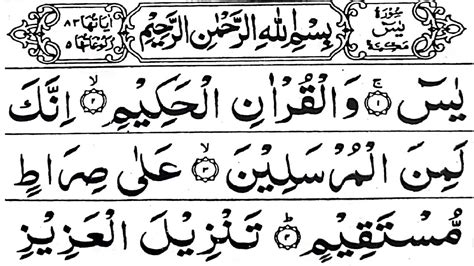 سُوْرَةُ يٰسٓ مَكِّيَّةٌ
بِسْمِ اللهِ الرَّحْمٰنِ الرَّحِيْمِ
اٰيَاتُهَا ٨٣ رُكُوْعَاتُهَا ٥
يٰسٓ ۚ﴿١﴾ وَالْقُرْاٰنِ الْحَكِيْمِ ۙ﴿٢﴾ اِنَّكَ
لَمِنَ الْمُرْسَلِيْنَ ۙ﴿٣﴾ عَلٰى صِرَاطٍ
مُّسْتَقِيْمٍ ؕ﴿٤﴾ تَنْزِيْلَ الْعَزِيْزِ